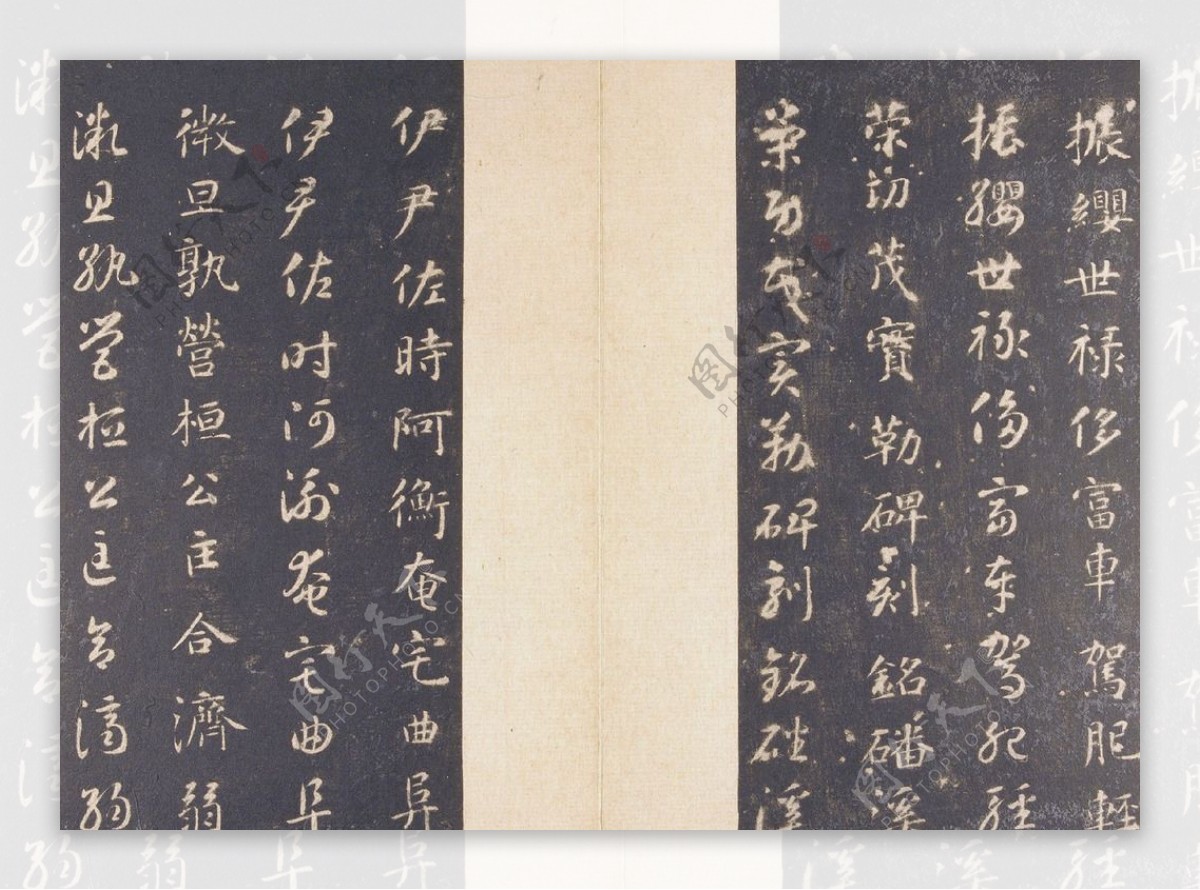 振纓世禄侈富車駕肥輕
振纓世禄侈富車駕肥輕
策功茂實勒碑刻銘磻溪
策功茂實勒碑刻銘磻溪
伊尹佐時阿衡奄宅曲阜
伊尹佐時阿衡奄宅曲阜
微旦孰營桓公匡合濟弱
微旦孰營桓公匡合濟弱
图行天下
PHOTOPHOTO.CN